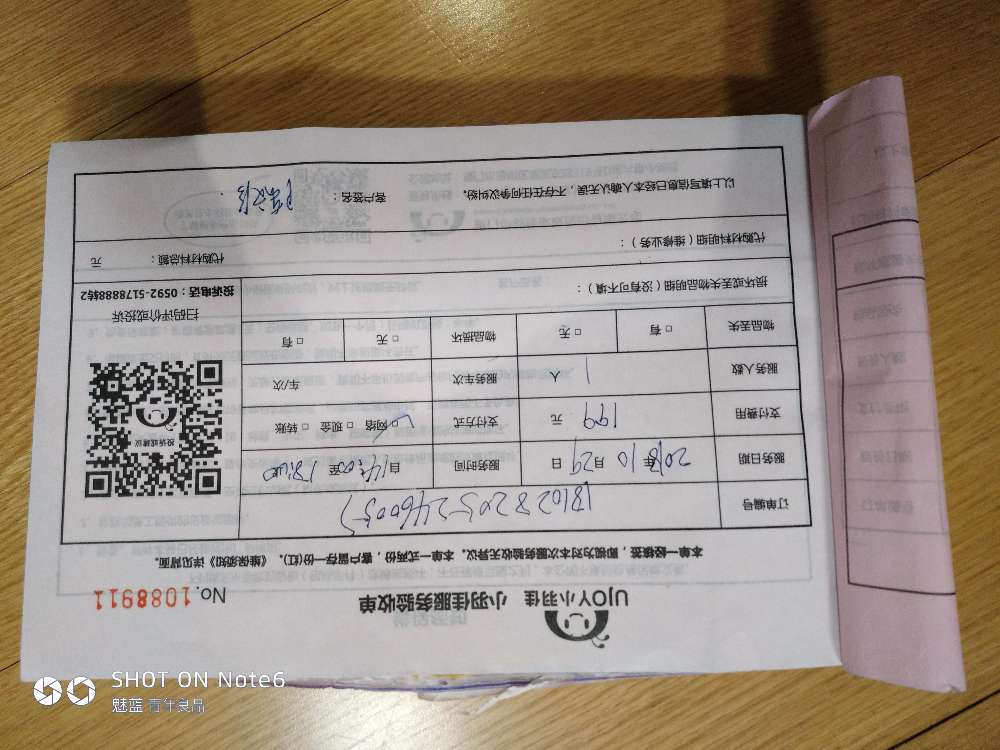 UJOY小羽佳 小羽佳服务验收单
No.1088911
本单一经核签，即视为对本次服务验收无异议。本单一式两份，客户留存一份(红)。《维保须知》详见背面。
订单编号 181028205246005
服务日期 2018年10月29日 服务时间 自14:00至18:00
支付费用 199元 支付方式 ☑网络 □现金 □转账
服务人数 1人 服务车次 车/次
物品丢失 □有 □无 物品损坏 □无 □有
投诉或建议
扫码评价或投诉
投诉电话：0592-5178888转2
损坏或丢失物品明细（没有可不填）：
代购材料明细（维修业务）：
代购材料总额： 元
以上填写信息已经本人确认无误，不存在任何争议纠纷。 客户签名：
SHOT ON Note6
魅蓝 青年良品